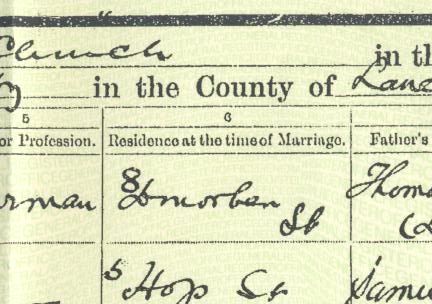 Church in th
in the County of Lanc
5 6
or Profession. Residence at the time of Marriage. Father's
rman 8 St Thoma
5 Hop St Samu